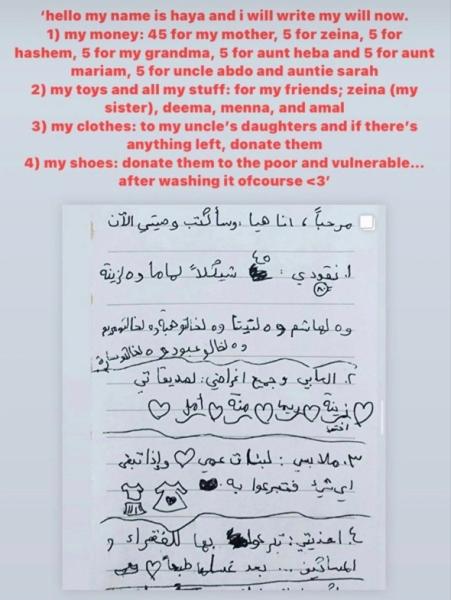 ‘hello my name is haya and i will write my will now.
1) my money: 45 for my mother, 5 for zeina, 5 for
hashem, 5 for my grandma, 5 for aunt heba and 5 for aunt
mariam, 5 for uncle abdo and auntie sarah
2) my toys and all my stuff: for my friends; zeina (my
sister), deema, menna, and amal
3) my clothes: to my uncle’s daughters and if there’s
anything left, donate them
4) my shoes: donate them to the poor and vulnerable...
after washing it ofcourse <3’
مرحباً، انا هيا، وسأكتب وصيتي الآن
٤٥
١. نقودي : شيكلاً لماما و ٥ لزينة
و ٥ لهاشم و ٥ لتيتا و ٥ لخالتو هبة و ٥ لخالتو مريم
و ٥ لخالو عبود و ٥ لخالتو سارة
٢. العابي و جميع اغراضي: لصديقاتي
زينة ريما منة أمل
اختي
٣. ملابسي : لبنات عمي وإذا تبقى
اي شيء فتبرعوا به.
٤. احذيتي: تبرعوا بها للفقراء و
المساكين... بعد غسلها طبعاً